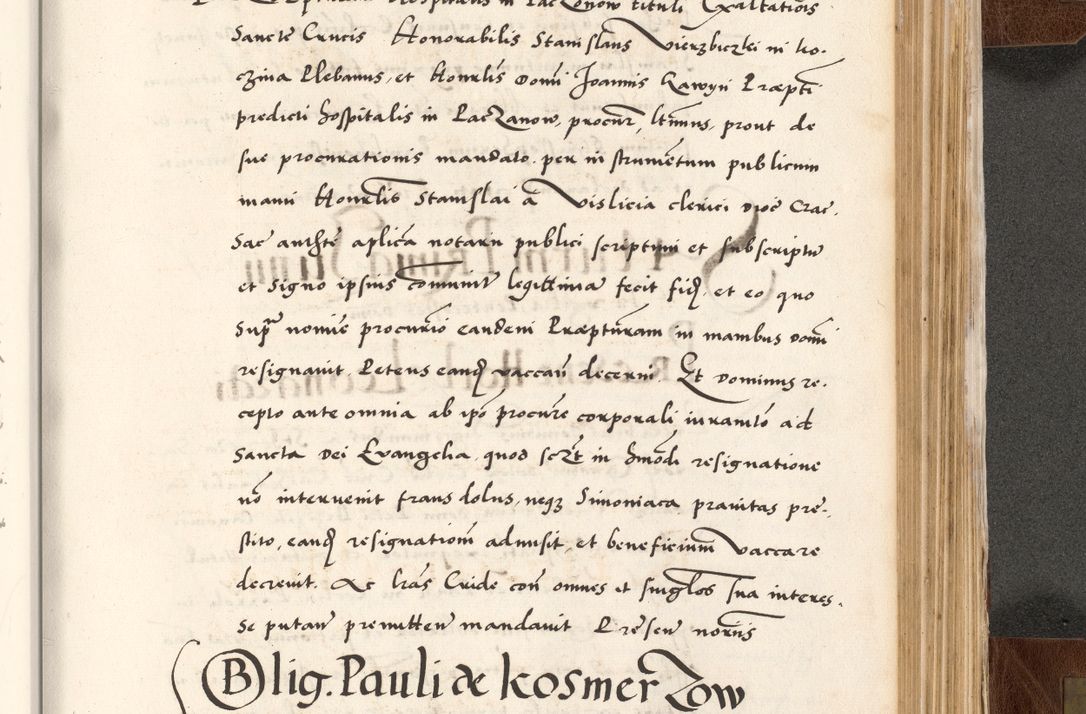 Hospitalis in Paczanow tituli Exaltationis
Sancte Crucis Honorabilis Stanislaus Vierzbiczki in ko-
czina Plebanus, et Honrlis Domi Joannis Gawyn Præpti
predicti hospitalis in PacZanow, procur, ltimus, prout de
sue procurationis mandato per instrumentum publicum
manu Honrlis Stanislai a Vislicia clerici Dioc Crac.
Sac authte aplica notarii publici scriptum et subscriptu
et signo ipsius communit legittima fecit fid, et eo quo
supra nomie procurio eandem Præpturam in manibus Domi
resignavit. Petens eand vaccari decerni. Et Dominus re-
cepto ante omnia ab ipo procure corporali iuramto ad
Sancta Dei Evangelia, quod in hmodi resignatione
no intervenit fraus dolus, neq3 Simoniaca pravitas pre-
stito, eand resignationem admisit, et beneficium vaccare
decrevit. Ac lras Cride con omnes et singlos sua interes-
se putan premitten mandavit Presen norijs
Blig. Pauli de kosmerZow